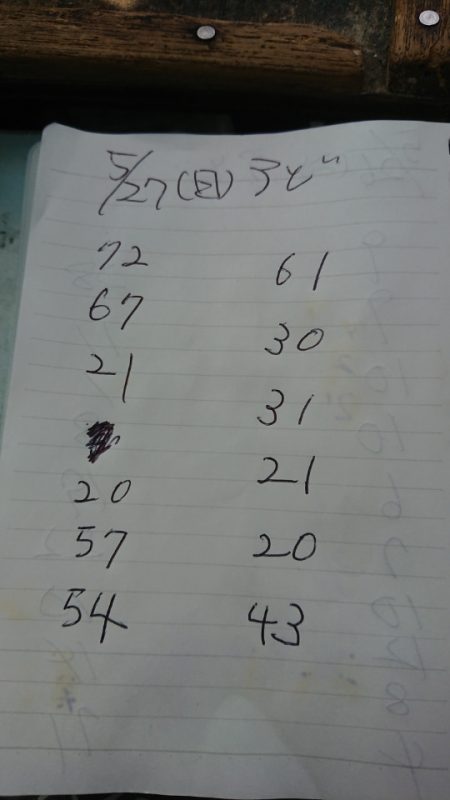 5/27(日)
72
67
21
20
57
54
61
30
31
21
20
43